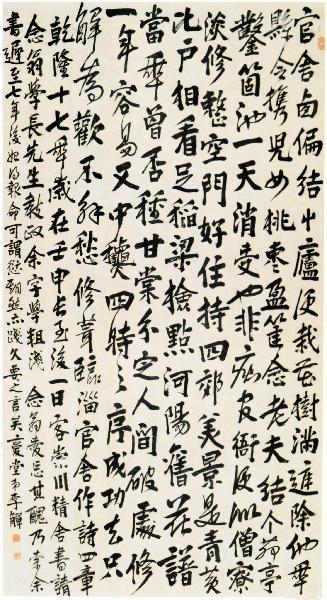 官舍卤偏结小廬便栽花樹滿造除他年
縣令携兒女桃棗盈筐念老夫结个茆亭
鑿箇池一天消受也非癡官衙便似僧寮
淡修整空門好住持四郊美景是青黄
比户相看足稻粱搶點河陽舊花譜
當年曾否種甘棠分定人間破處修
一年容易又中秋四時之序成功去只
解為歡不解愁修葺臨淄官舍作詩四章
乾隆十七年歲在壬申長至後一日客崇川精舍書請
念翁學長先生教政余字學粗淺念翁愛忘其醜乃索余
書遲至七年後始為報命可謂慫不踐久要之言矣憂堂弟李觶